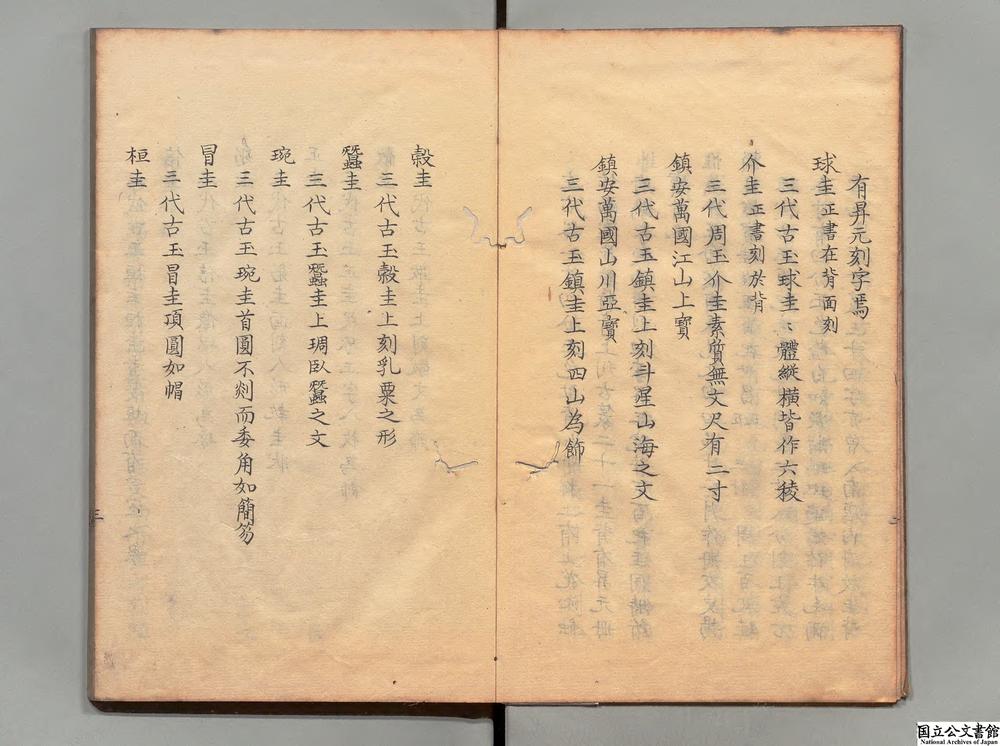 有昇元刻字焉
球圭 正書在背面刻
三代古玉球圭〻體縱橫皆作六稜
介圭 正書刻於背
三代周玉介圭素質無文尺有二寸
鎮安萬國江山上寳
三代古玉鎮圭上刻斗星山海之文
鎮安萬國山川亞寳
三代古玉鎮圭上刻四山為飾
榖圭
三代古玉榖圭上刻乳粟之形
蠶圭
三代古玉蠶圭上琱臥蠶之文
琬圭
三代古玉琬圭首圓不剡而委角如簡笏
冒圭
三代古玉冒圭項圓如帽
桓圭
三
国立公文書館
National Archives of Japan